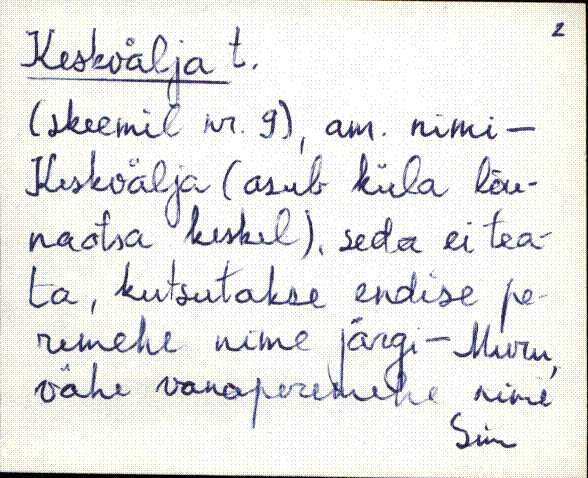 2
Keskvälja t.
(skeemil nr. 9), am. nimi –
Keskvälja (asub küla lõu-
naotsa keskel), seda ei tea-
ta, kutsutakse endise pe-
remehe nime järgi – Muru,
vähe vanaperemehe nime